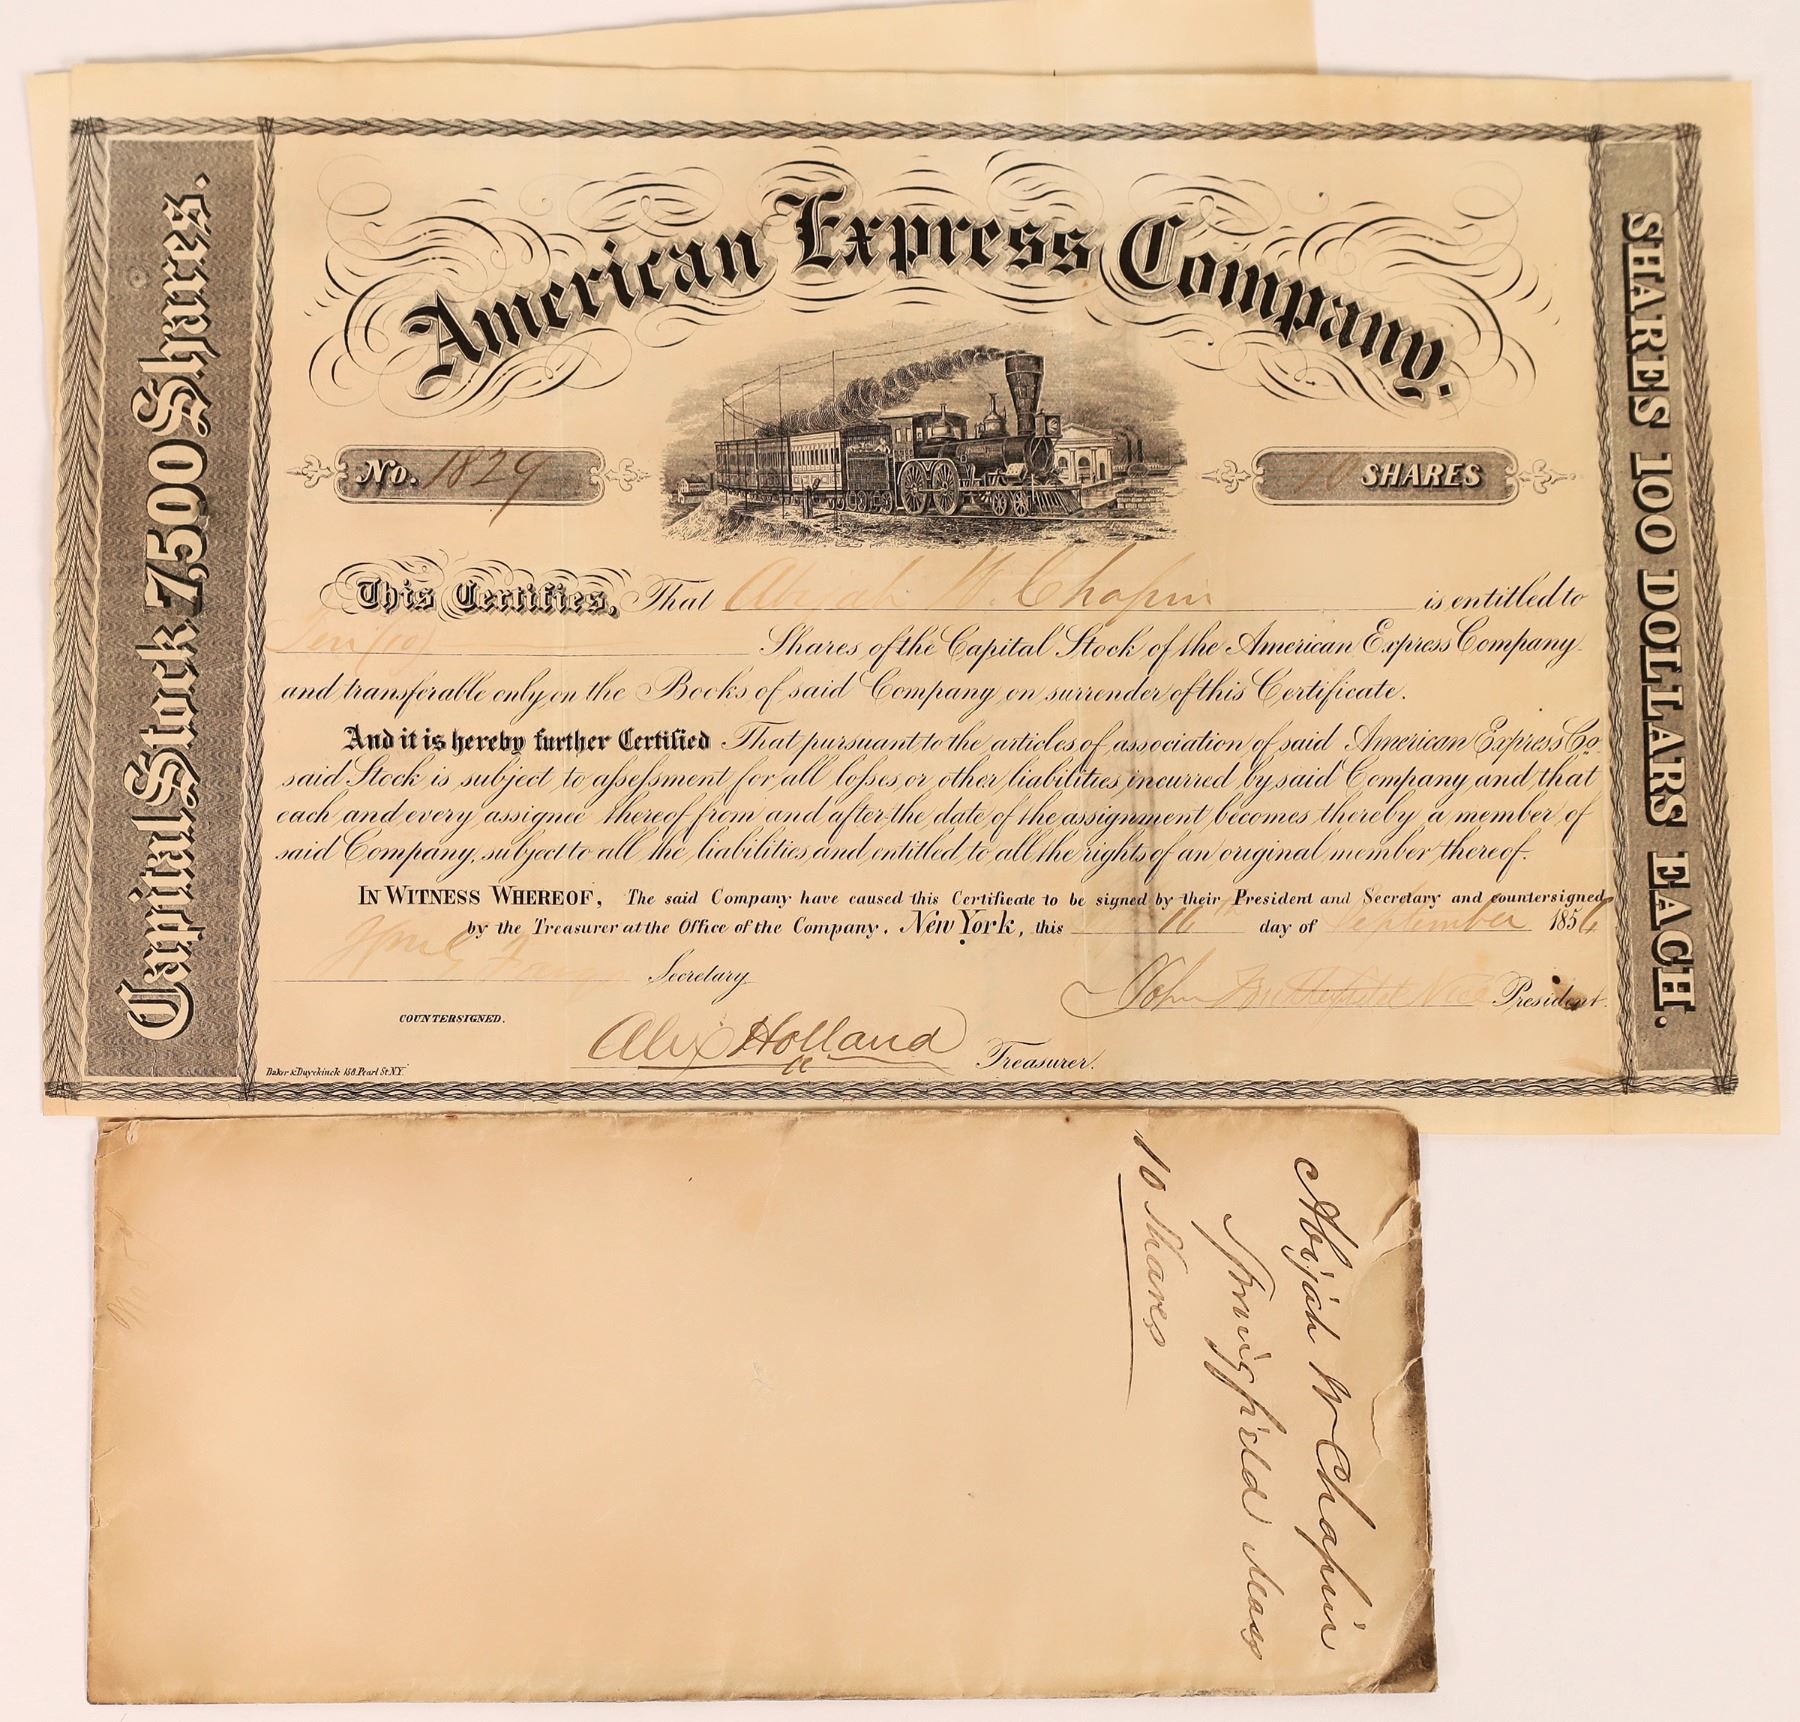 American Express Company.
Capital Stock 7,500 Shares.
SHARES 100 DOLLARS EACH.
No. 1829
10 SHARES
This Certifies, That Abijah W. Chapin is entitled to
Ten (10) Shares of the Capital Stock of the American Express Company
and transferable only on the Books of said Company on surrender of this Certificate.
And it is hereby further Certified That pursuant to the articles of association of said American Express Co.
said Stock is subject to assessment for all losses or other liabilities incurred by said Company and that
each and every assignee thereof from and after the date of the assignment becomes thereby a member of
said Company, subject to all the liabilities and entitled to all the rights of an original member thereof.
IN WITNESS WHEREOF, The said Company have caused this Certificate to be signed by their President and Secretary and countersigned
by the Treasurer at the Office of the Company. New York, this 16th day of September 1856
Wm G Fargo Secretary
John Butterfield Vice President.
COUNTERSIGNED.
Alex Holland Treasurer.
Baker & Duyckinck 158 Pearl St. N.Y.
Abijah W Chapin
Springfield Mass
10 Shares